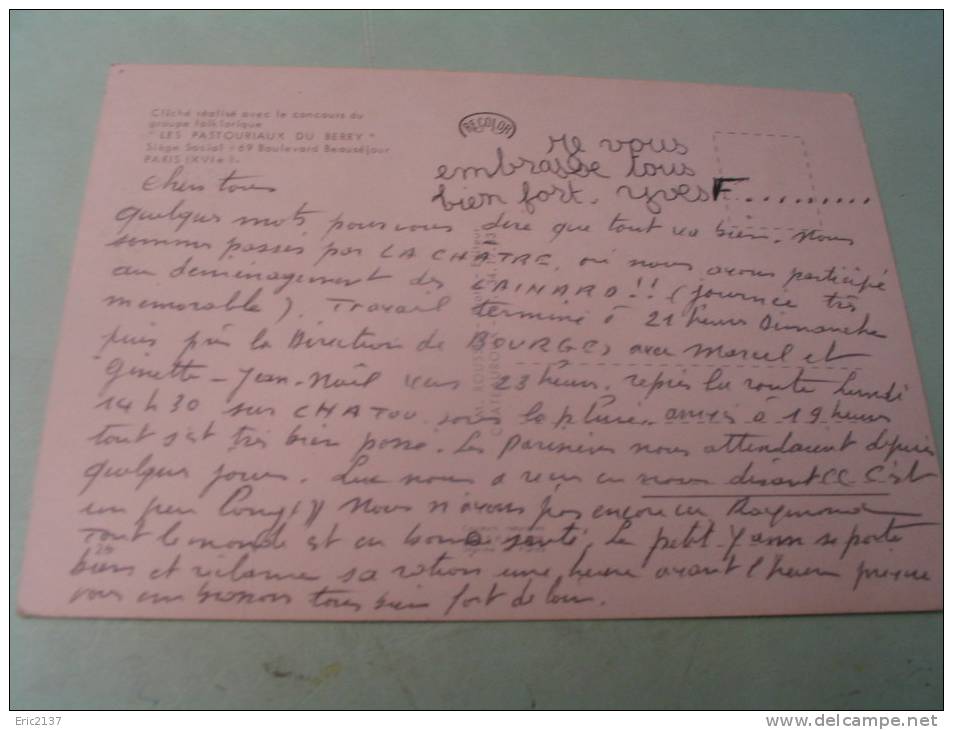 Cliché réalisé avec le concours du
groupe folklorique
" LES PASTOURIAUX DU BERRY "
Siège Social : 69 Boulevard Beauséjour
PARIS (XVIe).
RECOLOR
Je vous
embrasse tous
bien fort. Yves F.........
Chers tous
quelques mots pour vous dire que tout va bien. Nous
sommes passés par LA CHATRE, où nous avons participé
au déménagement des LAINARD !! (journée très
mémorable). Travail terminé à 21 heures Dimanche
puis pris la Direction de BOURGES avec Marcel et
Ginette - Jean-Noël vers 23 heures. repris la route lundi
14h30 sur CHATOU sous la pluie. arrivés à 19 heures
tout s'est très bien passé. Les Parisiens nous attendaient depuis
quelques jours. Luc nous a reçu en nous disant CC C'est
un peu long )) Nous n'avons pas encore vu Raymond
Tout le monde est en bonne santé, le petit Yann se porte
bien et réclame sa ration une heure avant l'heure presque
vous embrassons tous bien fort de loin.
26
Eric2137
www.delcampe.net